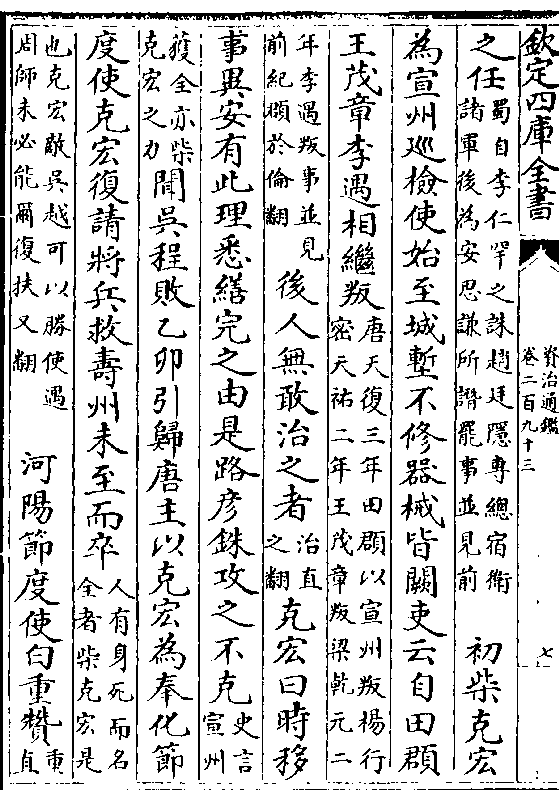 欽定四庫全書
資治通鑑
卷二百九十三
七
之任
蜀自李仁罕之誅趙廷隱專總宿衛
諸軍後為安思謙所譖罷事並見前
初柴克宏
為宣州巡檢使始至城塹不修器械皆闕吏云自田頵
王茂章李遇相繼叛
唐天復三年田頵以宣州叛楊行
密天祐二年王茂章叛梁乾元二
年李遇叛事並見
前紀頵於倫翻
後人無敢治之者
治直
之翻
克宏曰時移
事異安有此理悉繕完之由是路彥銖攻之不克
史言
宣州
獲全亦柴
克宏之力
聞吳程敗乙卯引歸唐主以克宏為奉化節
度使克宏復請將兵救壽州未至而卒
人有身死而名
全者柴克宏是
也克宏敵吳越可以勝使遇
周師未必能爾復扶又翻
河陽節度使白重贊
重
直